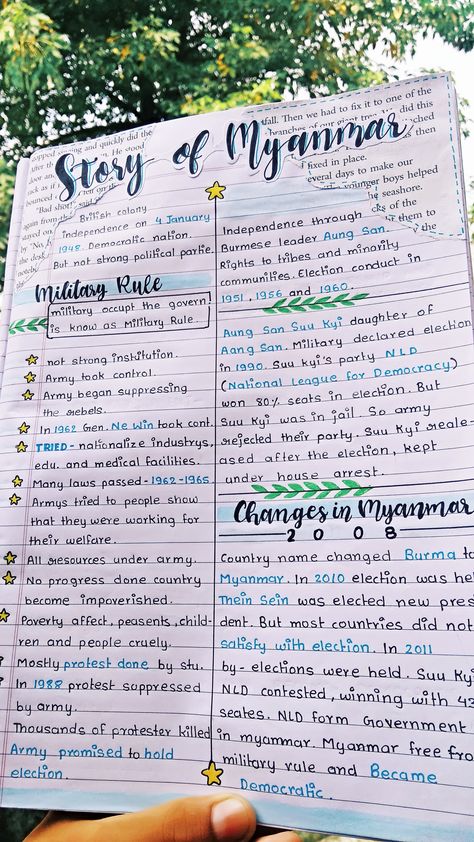 Story of Myanmar
British colony
independence on 4 January
1948. Democratic nation.
But not strong political partie.
Military Rule
military occupy the govern
is know as Military Rule.
not strong institution.
Army took control.
Army began suppressing
the rebels.
In 1962 Gen. Ne Win took cont.
TRIED - nationalize industrys,
edu. and medical facilities.
Many laws passed - 1962-1965
Armys tried to people show
that they were working for
their welfare.
All resources under army.
No progress done country
become impoverished.
Poverty affect, peasents, child-
ren and people cruely.
Mostly protest done by stu.
In 1988 protest suppressed
by army.
Thousands of protester killed
Army promised to hold
election.
Independence through
Burmese leader Aung San.
Rights to tribes and minority
communities. Election conduct in
1951, 1956 and 1960.
Aung San Suu Kyi daughter of
Aang San. Military declared election
in 1990. Suu kyi's party NLD
(National League for Democracy)
won 80% seats in election. But
Suu Kyi was in jail. So army
rejected their party. Suu Kyi reale-
ased after the election, kept
under house arrest.
Changes in Myanmar
2008
Country name changed Burma to
Myanmar. In 2010 election was he
Thein Sein was elected new pres
dent. But most countries did not
satisfy with election. In 2011
by-elections were held. Suu Ky
NLD contested, winning with 43
seates. NLD form Government
in myanmar. Myanmar free fro
military rule and Became
Democratic.
fall. Then we had to fix it to one of the
branches of our giant tree. We did this
then
fixed in place.
several days to make our
younger boys helped
the seashore.